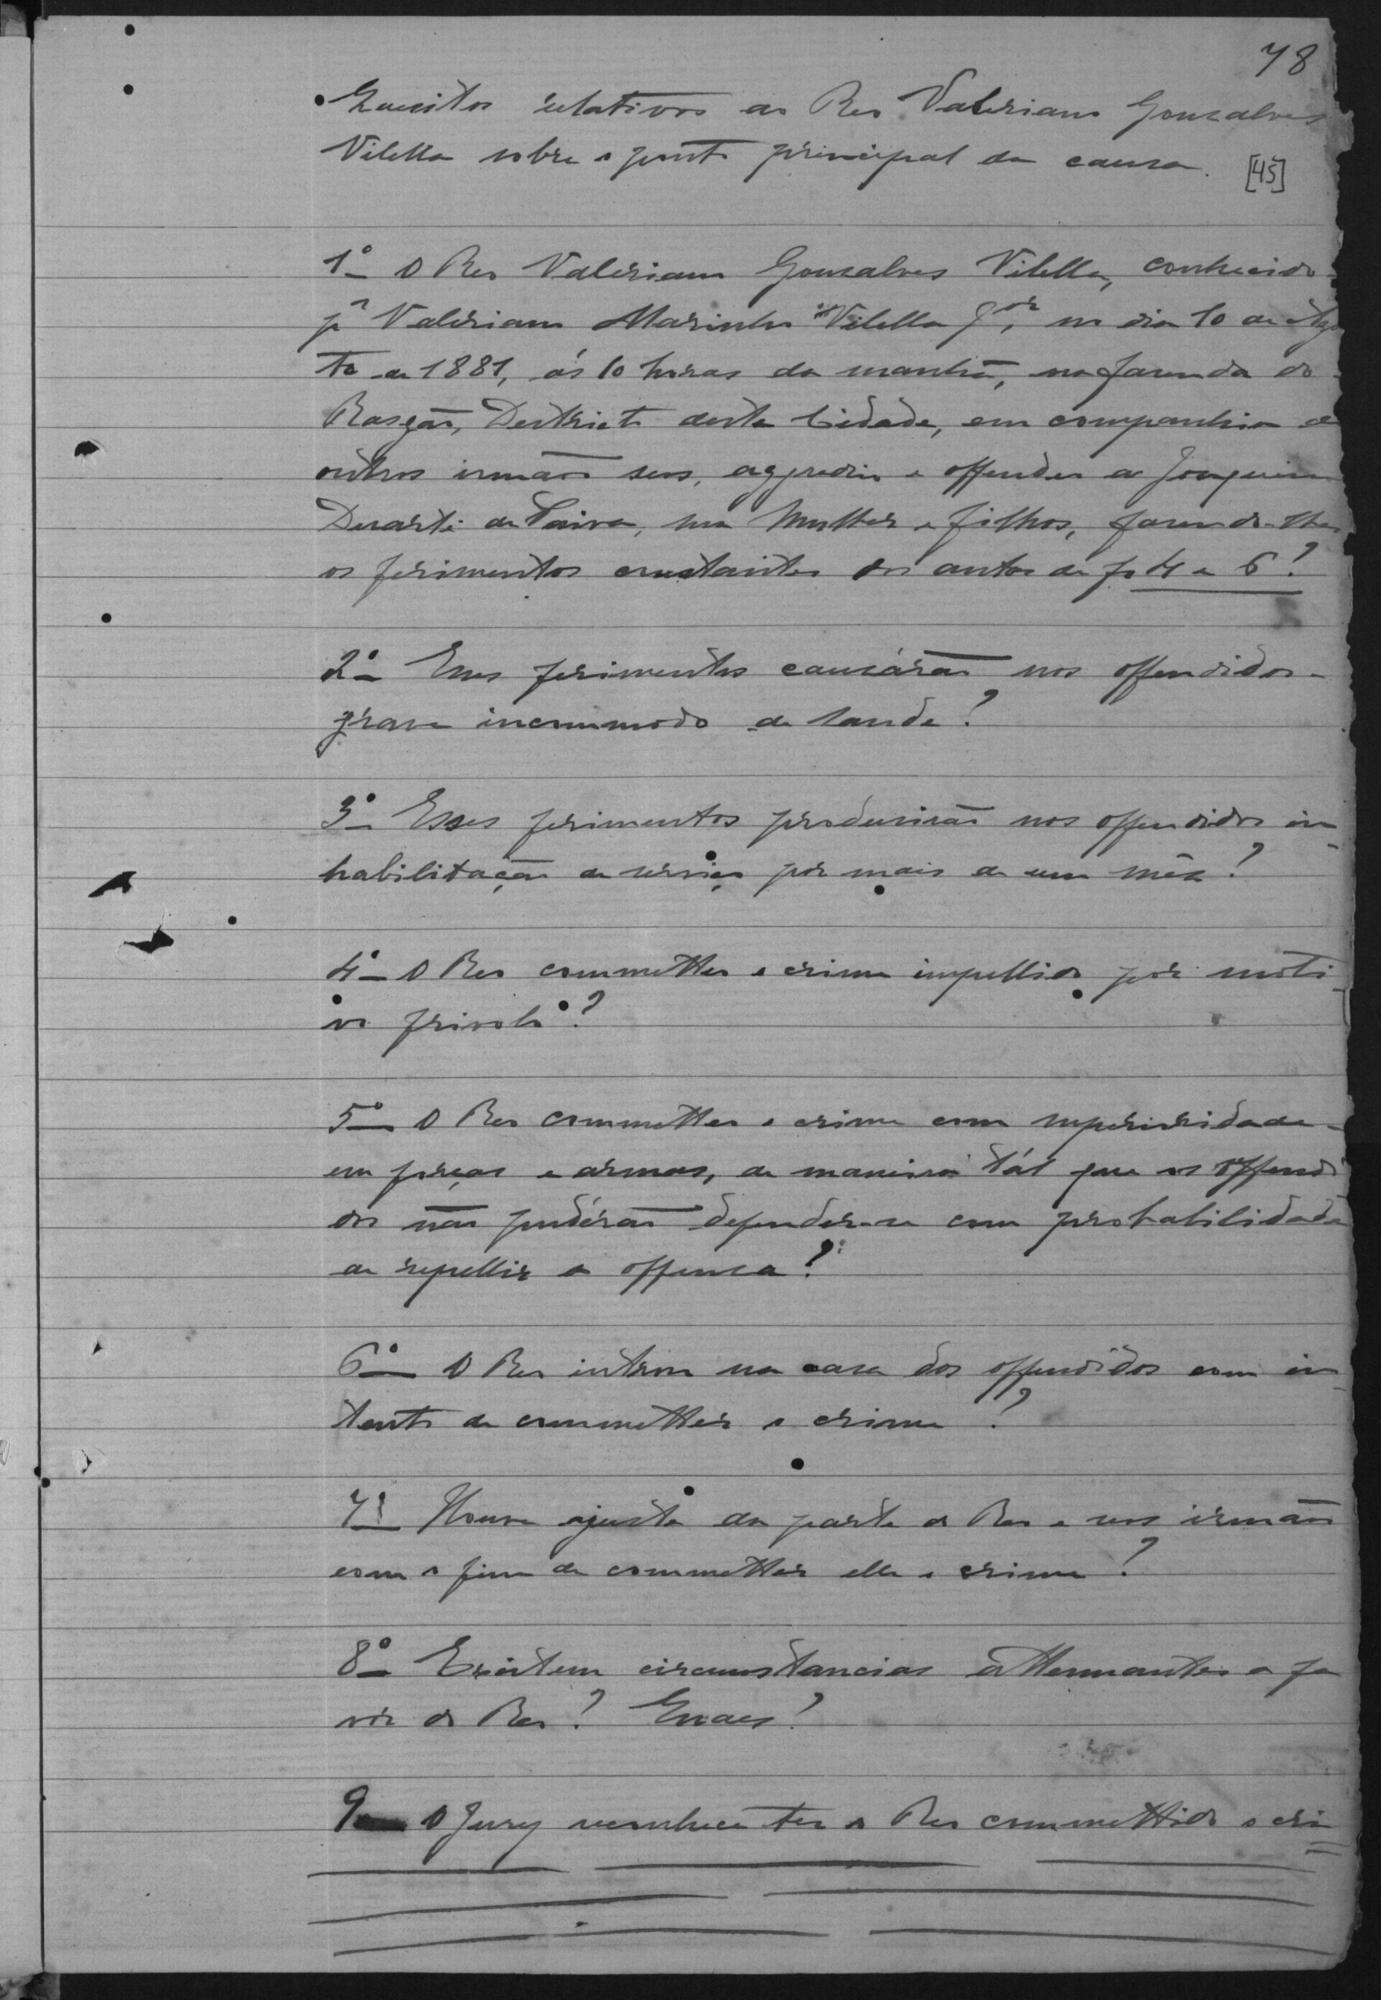 78
Quesitos relativos ao Reo Valeriano Gonsalves
Vilella sobre o ponto principal da causa.
[45]
1º O Reo Valeriano Gonsalves Vilella, conhecido
pr Valeriano Marinho Vilella Jor, no dia 10 de Agos
to de 1881, ás 10 horas da manhã, na fazenda do
Rasgão, Destricto desta Cidade, em companhia de
outros irmãos seos, aggredio e offendeo a Joaquim
Duarte de Paiva, sua Mulher e filhos, fasendo-lhes
os ferimentos constantes dos autos de fs 4 e 6?
2º Esses ferimentos causárão nos offendidos
grave incommodo de saude?
3º Esses ferimentos produsirão nos offendidos in
habilitação de serviço por mais de um mês?
4º O Reo commetteo o crime impellido por moti
vo frivolo?
5º O Reo commetteo o crime com superioridade
em forças e armas, de maneira tál que os offendi
dos não pudérão defender-se com probabilidade
de repellir a offensa?
6º O Reo entrou na casa dos offendidos com in
tento de commetter o crime?
7º Houve ajuste da parte do Reo e seos irmãos
com o fim de commetter elle o crime?
8º Existem circumstancias attenuantes a fa
vôr do Reo? Quaes?
9º O Jury reconhece ter o Reo commettido o cri